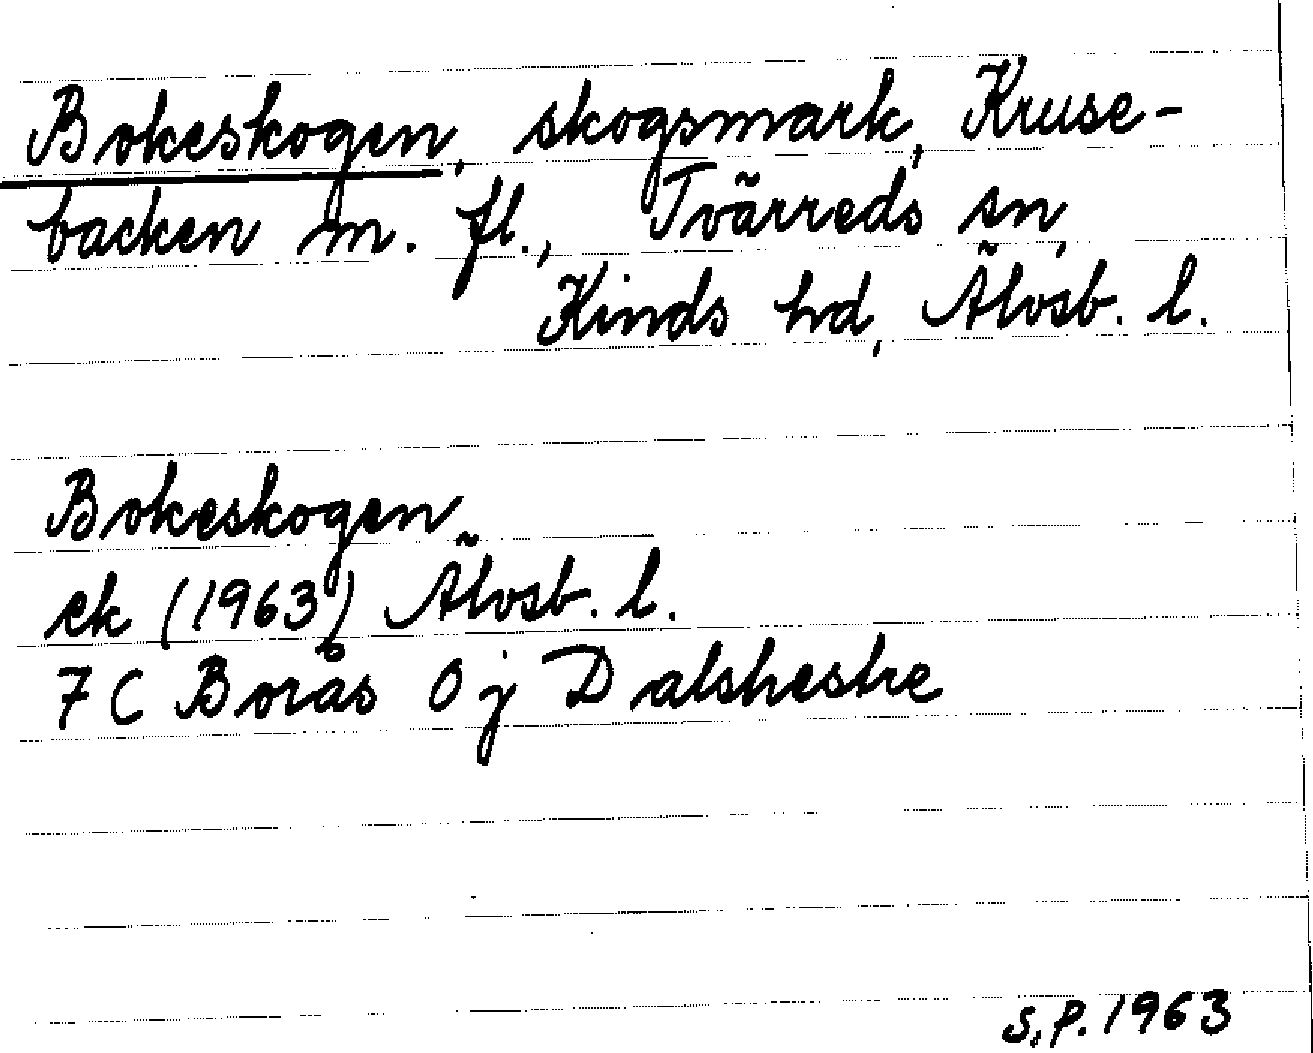 Bokeskogen, skogsmark, Kruse-
backen m. fl., Tvärreds sn,
Kinds hd, Älvsb. l.
Bokeskogen
ek (1963) Älvsb. l.
7 C Borås 0 j Dalshestre
S.P. 1963